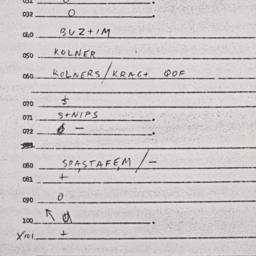 031 0
032 0 .
040 BUZ+IM
050 KOLNER
060 KOLNERS/KRAG+ QOF
070 5
071 S+NIPS
072 0 - .
080 SPASTAFEM/-
081 +
090 0
100 0 .
X101 +